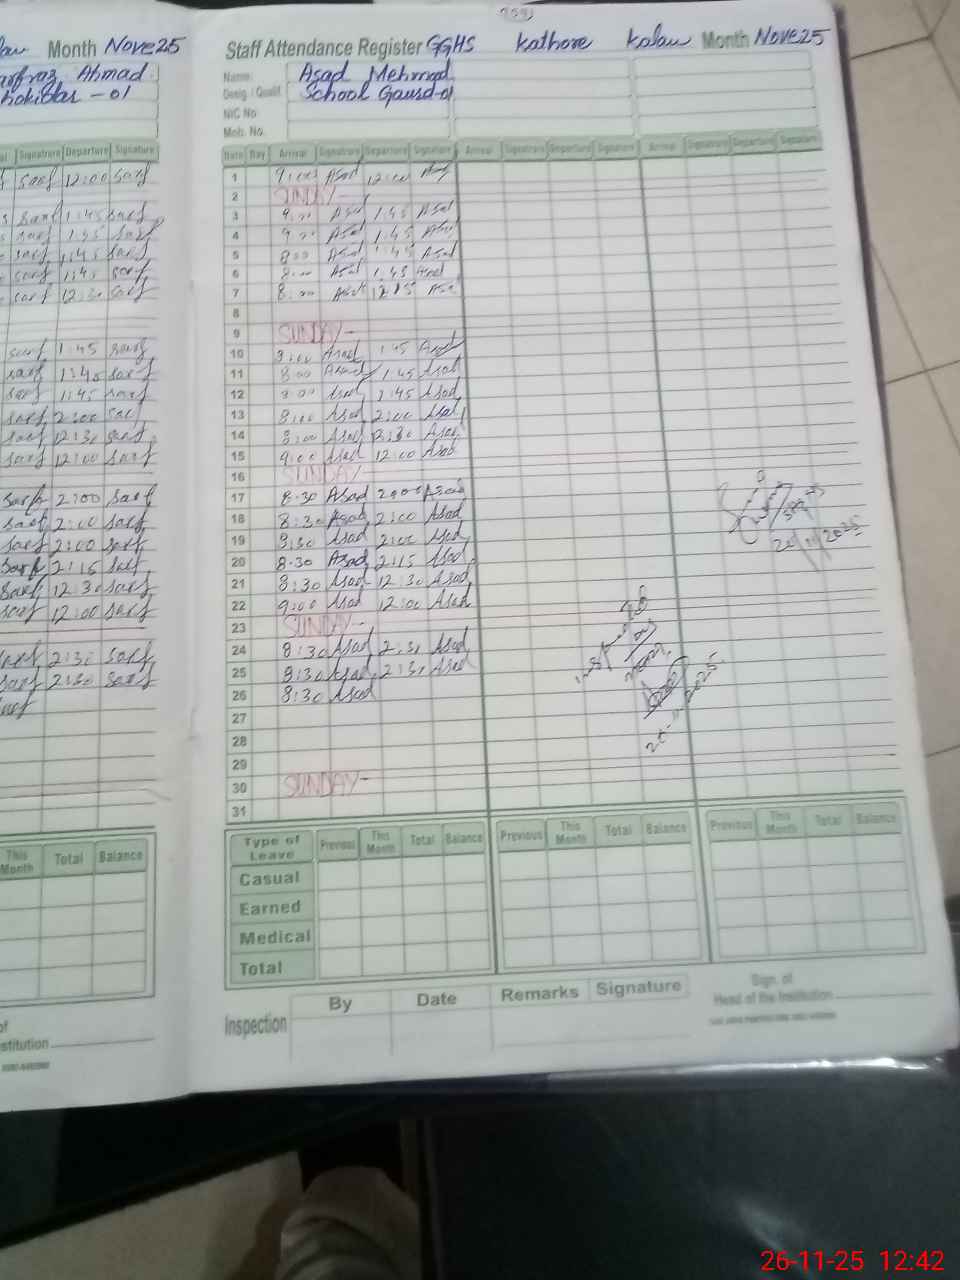 Month Nove25
Ahmad
-01
Signature Departure Signature
sarf 12:00 sarf
sarf 1:45 sarf
sarf 1:45 sarf
sarf 1:45 sarf
sarf 1:45 sarf
sarf 12:30 sarf
sarf 1:45 sarf
sarf 1:45 sarf
sarf 1:45 sarf
sarf 2:00 sarf
sarf 12:30 sarf
sarf 12:00 sarf
sarf 2:00 sarf
sarf 2:00 sarf
sarf 2:00 sarf
sarf 2:15 sarf
sarf 12:30 sarf
sarf 12:00 sarf
sarf 2:30 sarf
sarf 2:30 sarf
sarf
This Month Total Balance
Staff Attendance Register GGHS Kathore Kalan Month Nove25
Name: Asad Mehmod
Desig / Qualif School Gaurd-01
NIC No
Mob. No.
Date Day Arrival Signature Departure Signature Arrival Signature Departure Signature Arrival Signature Departure Signature
1 9:00 Asad 12:00 Asad
2 SUNDAY-
3 Asad 1:45 Asad
4 Asad 1:45 Asad
5 8:00 Asad 1:45 Asad
6 8:00 Asad 1:45 Asad
7 8:00 Asad Asad
8
9 SUNDAY-
10 Asad 1:45 Asad
11 8:00 Asad 1:45 Asad
12 Asad 1:45 Asad
13 8:00 Asad 2:00 Asad
14 8:00 Asad 12:30 Asad
15 9:00 Asad 12:00 Asad
16 SUNDAY-
17 8:30 Asad 2:00 Asad
18 8:30 Asad 2:00 Asad
19 8:30 Asad 2:00 Asad
20 8:30 Asad 2:15 Asad
21 8:30 Asad 12:30 Asad
22 9:00 Asad 12:00 Asad
23 SUNDAY-
24 8:30 Asad 2:30 Asad
25 8:30 Asad 2:30 Asad
26 8:30 Asad
27
28
29
30 SUNDAY-
31
Type of Leave Previous This Month Total Balance Previous This Month Total Balance Previous This Month Total Balance
Casual
Earned
Medical
Total
Inspection By Date Remarks Signature
Sign. of
Head of the Institution
26-11-25 12:42